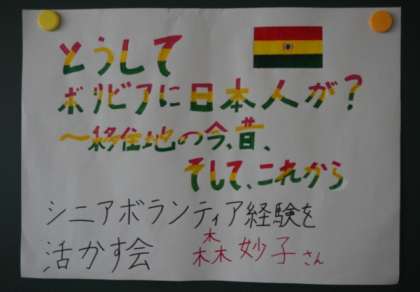 どうして
ボリビアに日本人が?
～移住地の今、昔、
そして、これから
シニアボランティア経験を
活かす会 森 妙子さん